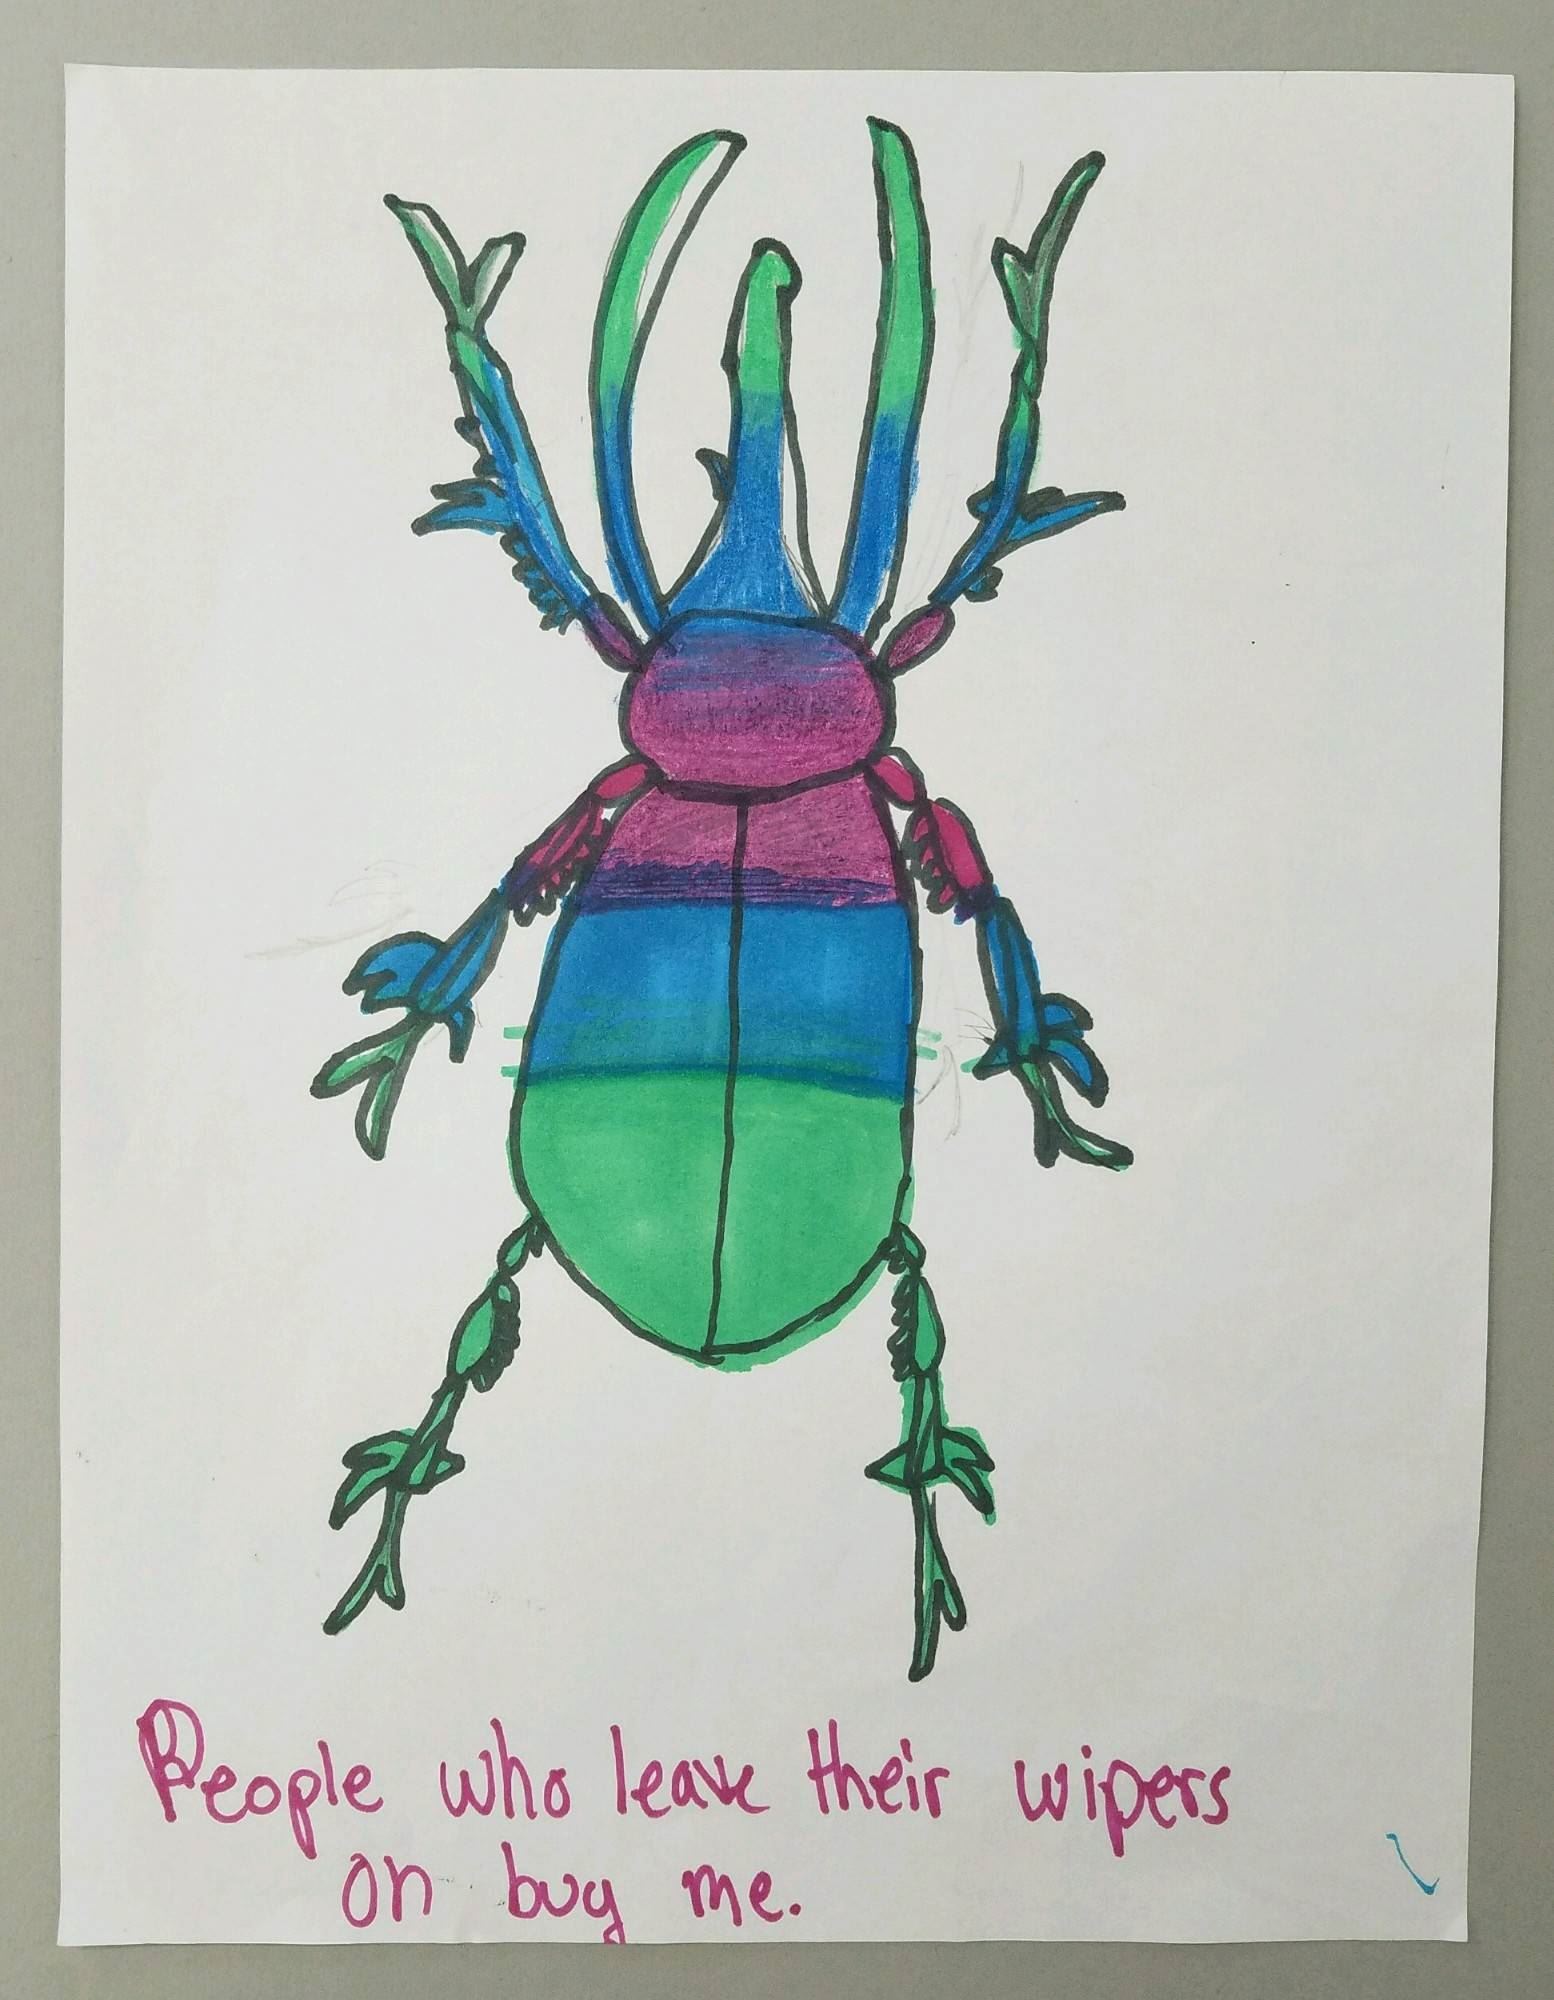 People who leave their wipers
on bug me.